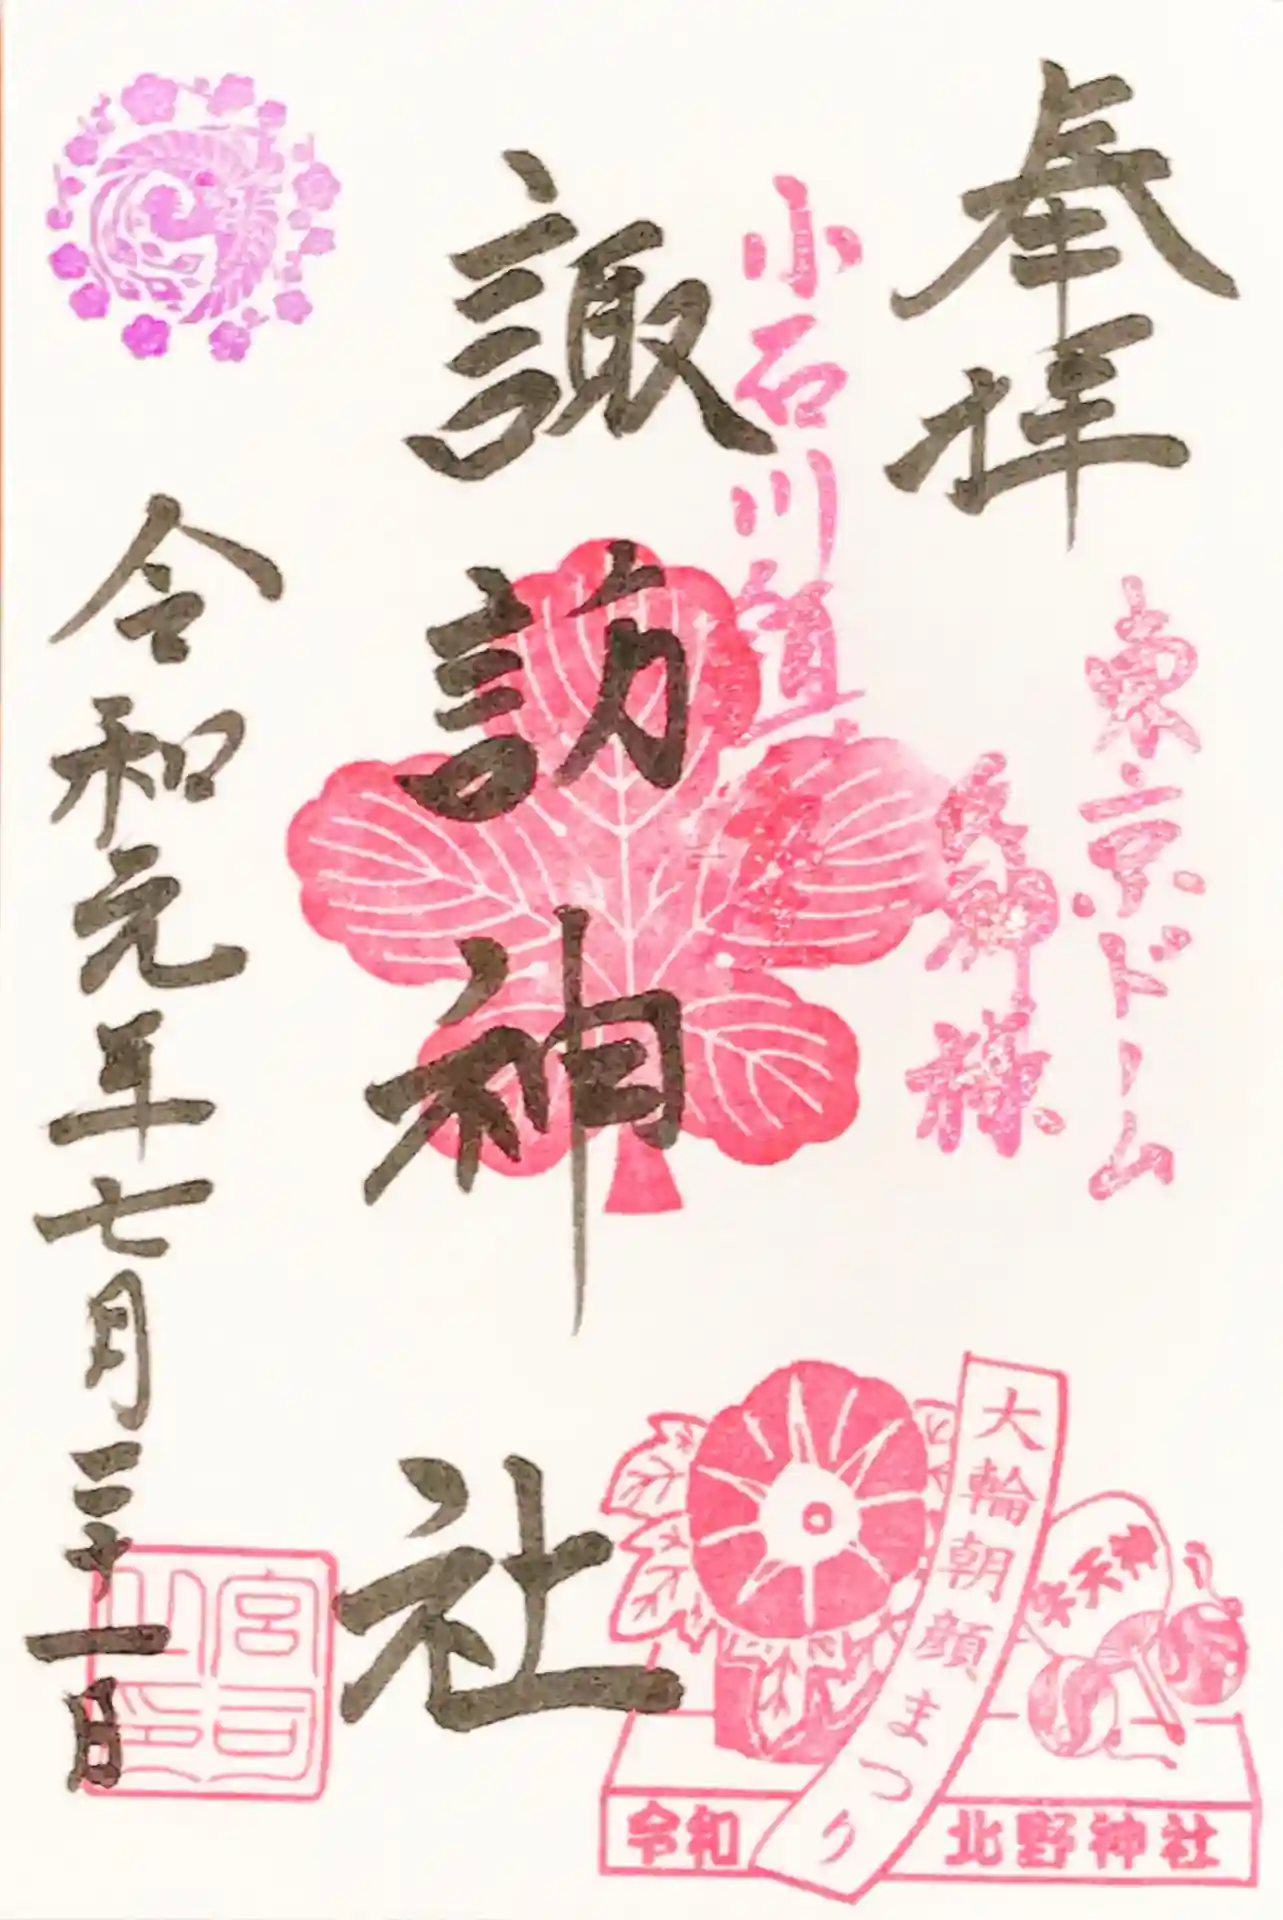 奉拝
東京ドーム
氏神様
小石川
諏訪神社
令和元年七月三十一日
宮司之印
大輪朝顔まつり
牛天神
令和
北野神社